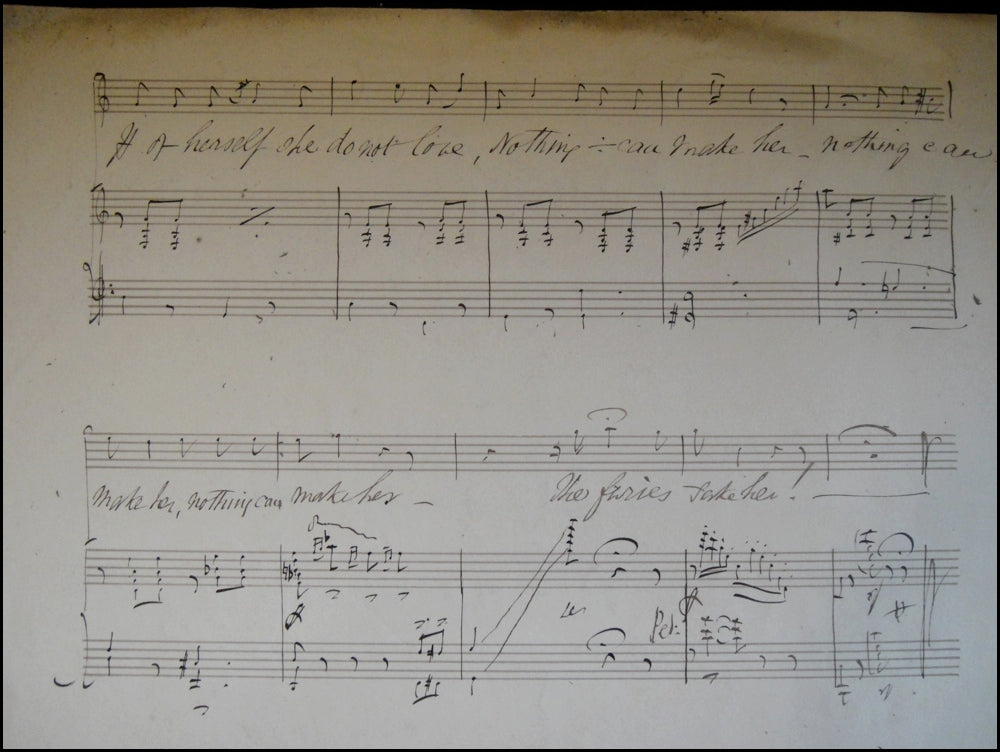 If of herself she do not love, Nothing ÷ can make her – nothing can
make her, nothing can make her – The furies take her!
Ped: